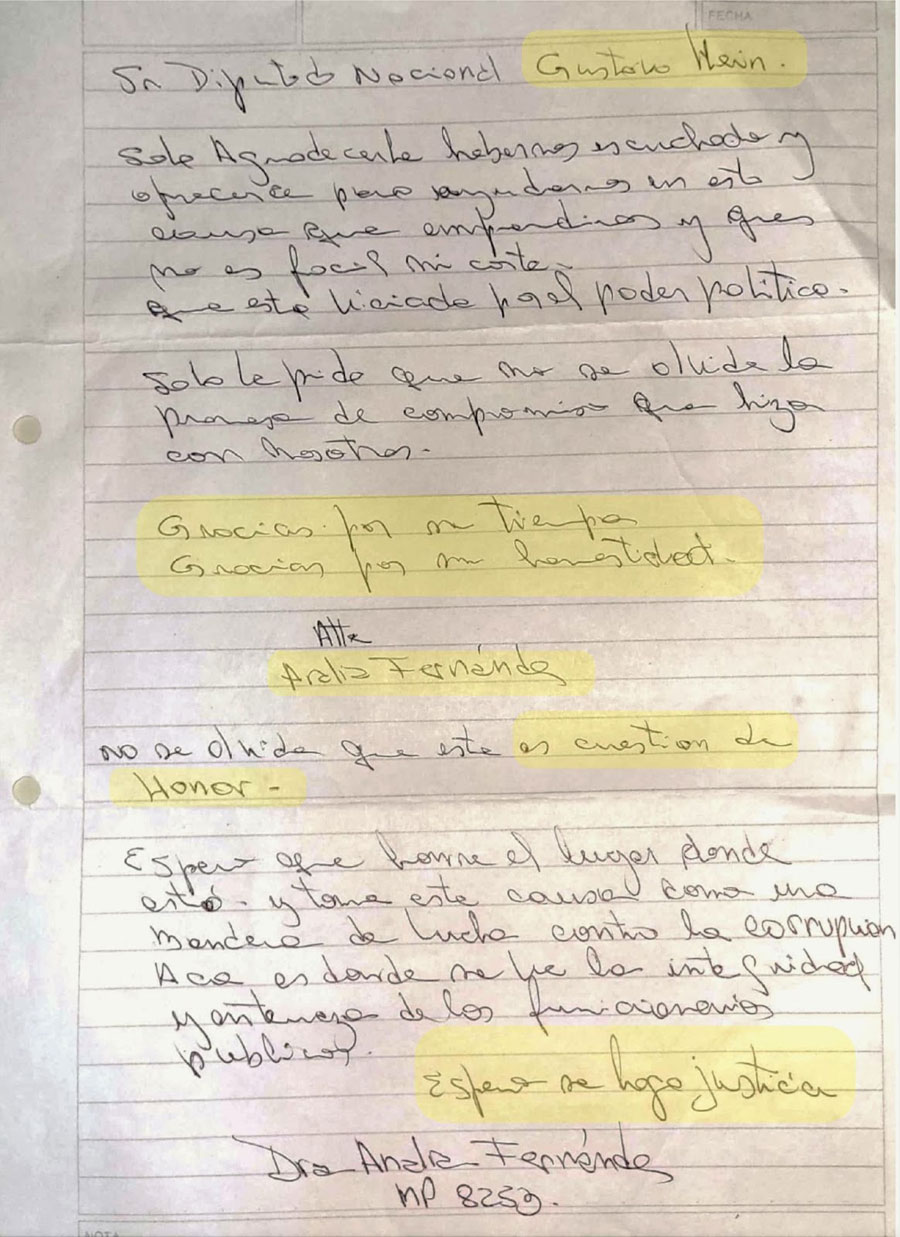 FECHA
Sr Diputado Nacional Gustavo Hein.
Solo Agradecerle habernos escuchado y
ofrecerce para ayudarnos en esta
causa que emprendimos y que
no es facil ni corta.
que está viciada por el poder politico.
Solo le pido que no se olvide la
promesa de compromiso que hizo
con nosotros.
Gracias por su tiempo
Gracias por su honestidad.
Atte
Analia Fernández
no se olvide que esta es cuestion de
Honor -
Espero que honre el lugar donde
está. y tome esta causa como una
bandera de lucha contra la corrupcion
Aca es donde se ve la integridad
y entereza de los funcionarios
publicos.
Espero se haga justicia
Dra Analia Fernández
MP 8259.
NOTA